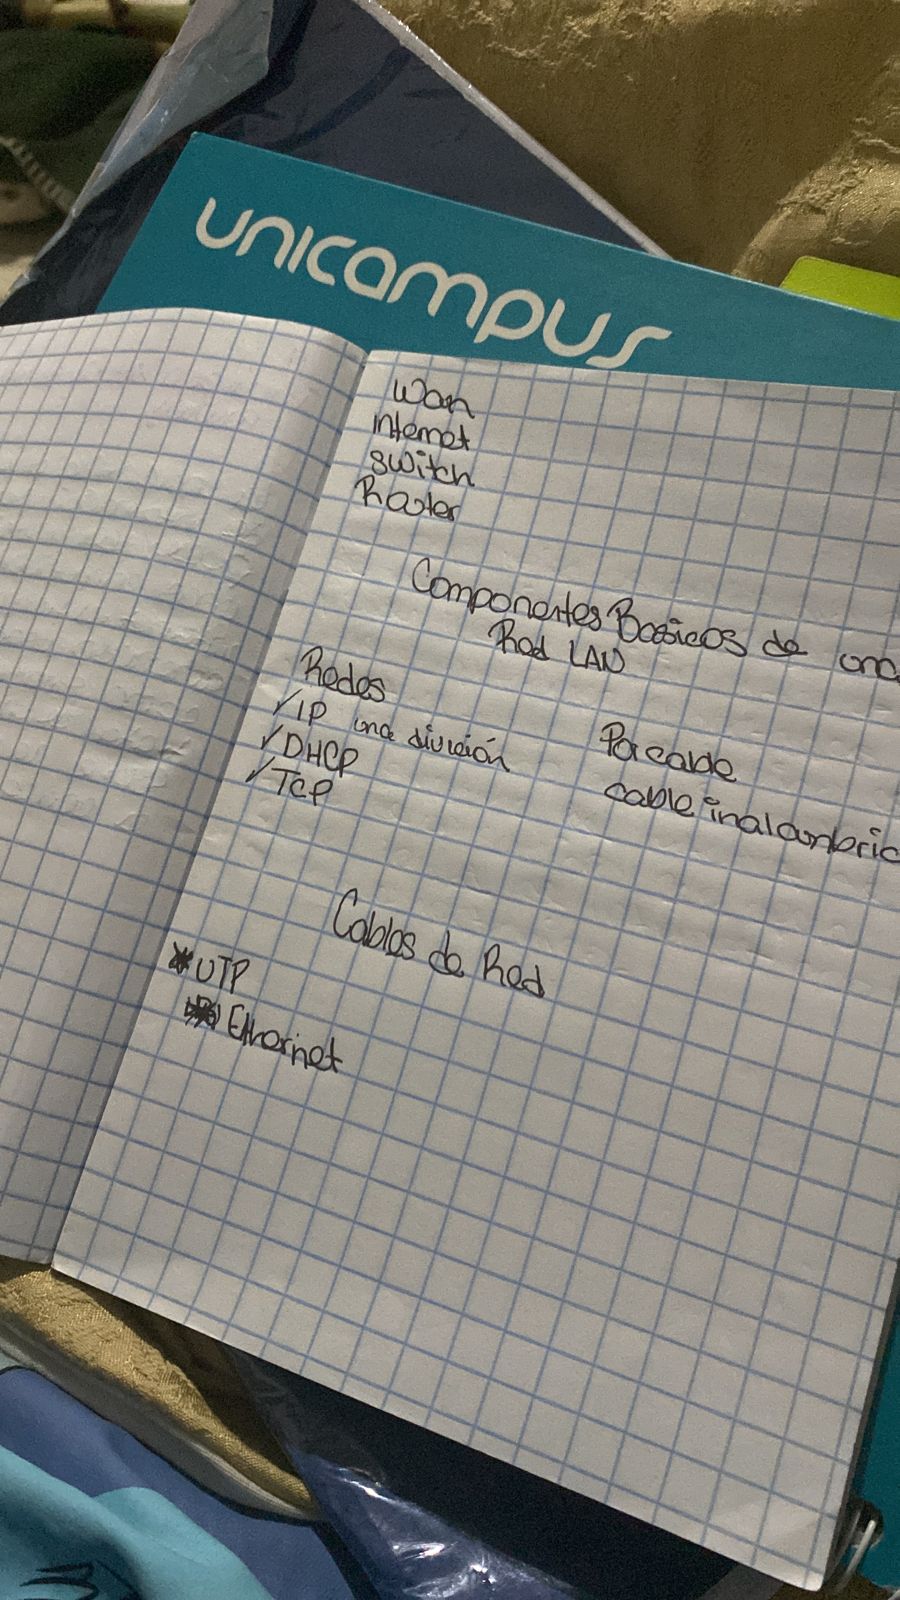 unicampus
Wan
internet
switch
Router
Componentes Basicos de una
Red LAN
Redes
✓ IP una división
✓ DHCP
✓ TCP
Por cable
cable inalambric
Cables de Red
* UTP
Ethernet